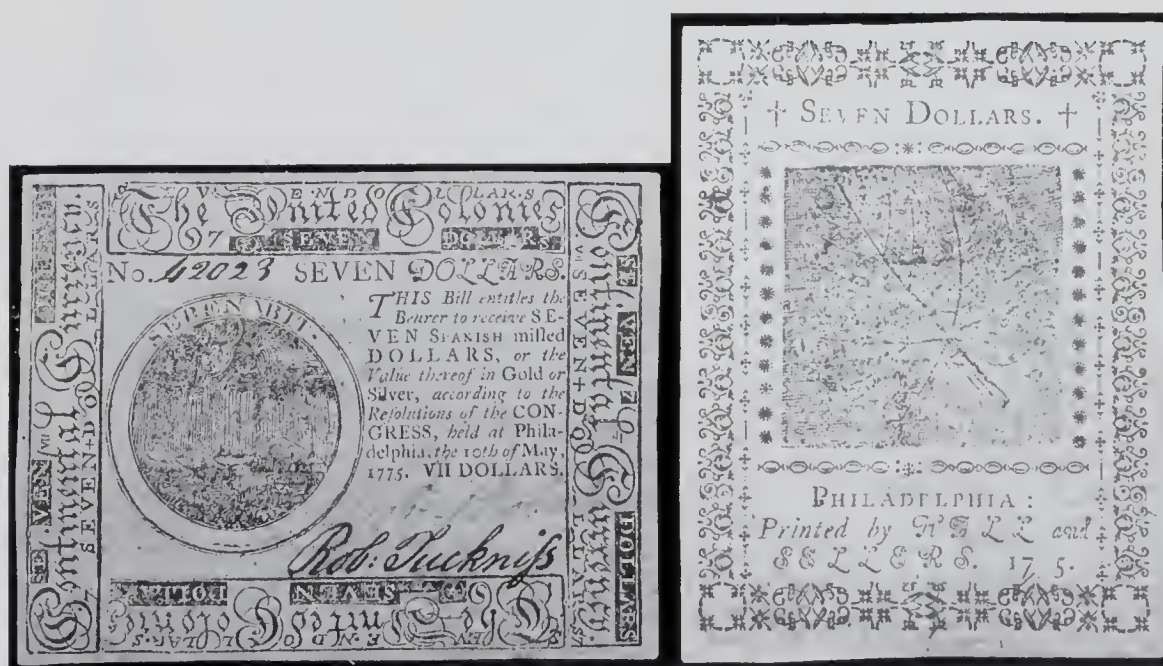 The United Colonies
SEVEN DOLLARS
No. 42023 SEVEN DOLLARS.
SERENABIT.
THIS Bill entitles the
Bearer to receive SE-
VEN SPANISH milled
DOLLARS, or the
Value thereof in Gold or
Silver, according to the
Resolutions of the CON-
GRESS, held at Phila-
delphia, the 10th of May,
1775. VII DOLLARS.
Rob: Tuckniss
Continental Currency
SEVEN DOLLARS
SEVEN + DOLLARS
Continental Currency
SEVEN + DOLLARS
The United Colonies
SEVEN DOLLARS
† SEVEN DOLLARS. †
PHILADELPHIA:
Printed by HALL and
SELLERS. 17 5.